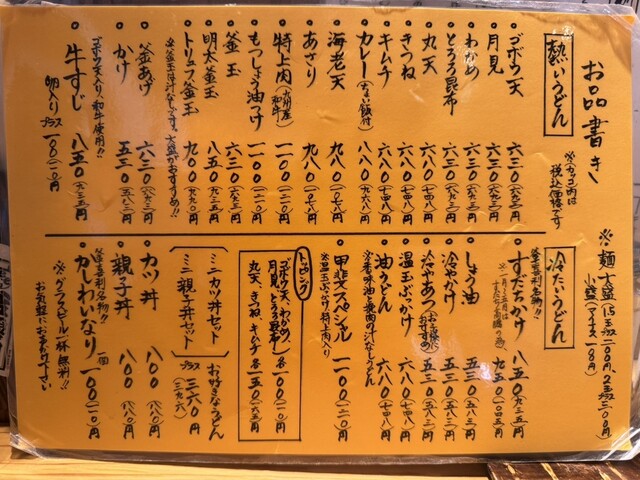 お品書き
※カッコ内は
税込価格です
熱いうどん
・ゴボウ天 六三〇(六九三)円
・月見 六三〇(六九三)円
・わかめ 六三〇(六九三)円
・とろろ昆布 六三〇(六九三)円
・丸天 六八〇(七四八)円
・きつね 六八〇(七四八)円
・キムチ 六八〇(七四八)円
・カレー(さない飯付) 八八〇(九六八)円
・海老天 九八〇(一〇七八)円
・あさり 九八〇(一〇七八)円
・特上肉(九州産和牛) 一一〇〇(一二一〇)円
・もつしょう油つけ 一一〇〇(一二一〇)円
・釜玉 六三〇(六九三)円
・明太釜玉 八五〇(九三五)円
・トリュフ釜玉 九〇〇(九九〇)円
※釜玉は汁なしです。大盛がおすすめ!!
・釜あげ 六三〇(六九三)円
・かけ 五三〇(五八三)円
ゴボウ天入り、和牛使用!!
・牛すじ 八五〇(九三五)円
卵入り プラス一〇〇(一一〇)円
※麺大盛 1.5玉 一〇〇円、2玉 二〇〇円
小盛(マイナス一〇〇円)
冷たいうどん
釜喜利名物!!
・すだちかけ 八五〇(九三五)円
九五〇(一〇四五)円
・しょう油 五三〇(五八三)円
・冷やかけ 五三〇(五八三)円
・冷やあつ 五三〇(五八三)円
・温玉ぶっかけ 六八〇(七四八)円
・油うどん 六八〇(七四八)円
※香味油と挽肉の汁なしうどん
・甲斐スペシャル 一一〇〇(一二一〇)円
※温玉ぶっかけ、特上肉入り
トッピング
ゴボウ天、わかめ、
月見、とろろ昆布 各一〇〇(一一〇)円
丸天、きつね、キムチ 各一五〇(一六五)円
ミニカツ丼セット
ミニ親子丼セット
お好きなうどん
プラス三六〇円
(三九六)
・カツ丼 八〇〇(八八〇)円
・親子丼 八〇〇(八八〇)円
釜喜利名物!!
・かしわいなり 一個 一〇〇(一一〇)円
※グラスビール一杯無料!!
お気軽にお申し付け下さい